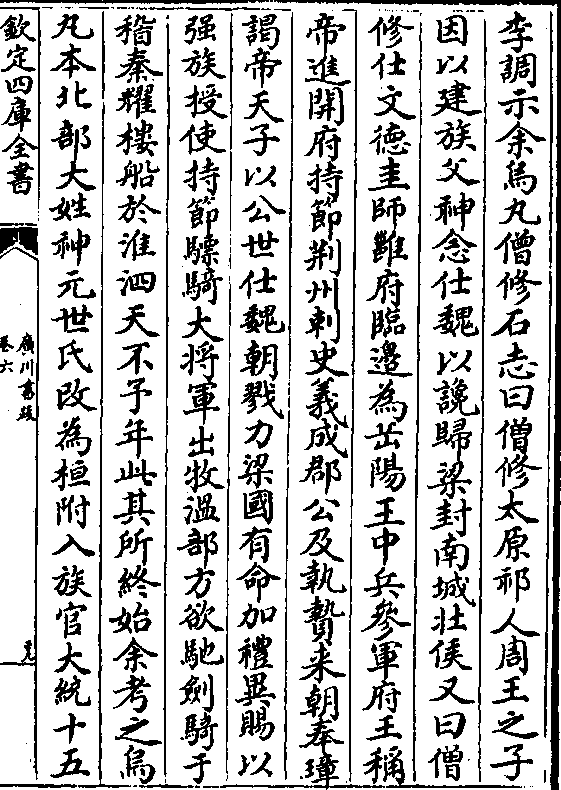 李調示余烏丸僧修石志曰僧修太原祁人周王之子
因以建族父神念仕魏以讒歸梁封南城壮侯又曰僧
修仕文徳圭師難府臨邉為岳陽王中兵參軍府王稱
帝進開府持節荆州刺史義成郡公及執贄来朝奉璋
謁帝天子以公世仕魏朝戮力梁國有命加禮異賜以
强族授使持節驃騎大将軍出牧温部方欲馳劍騎于
稽秦耀樓船於淮泗天不予年此其所終始余考之烏
丸本北部大姓神元世氏改為桓附入族官大統十五
欽定四庫全書
廣川書跋
卷六